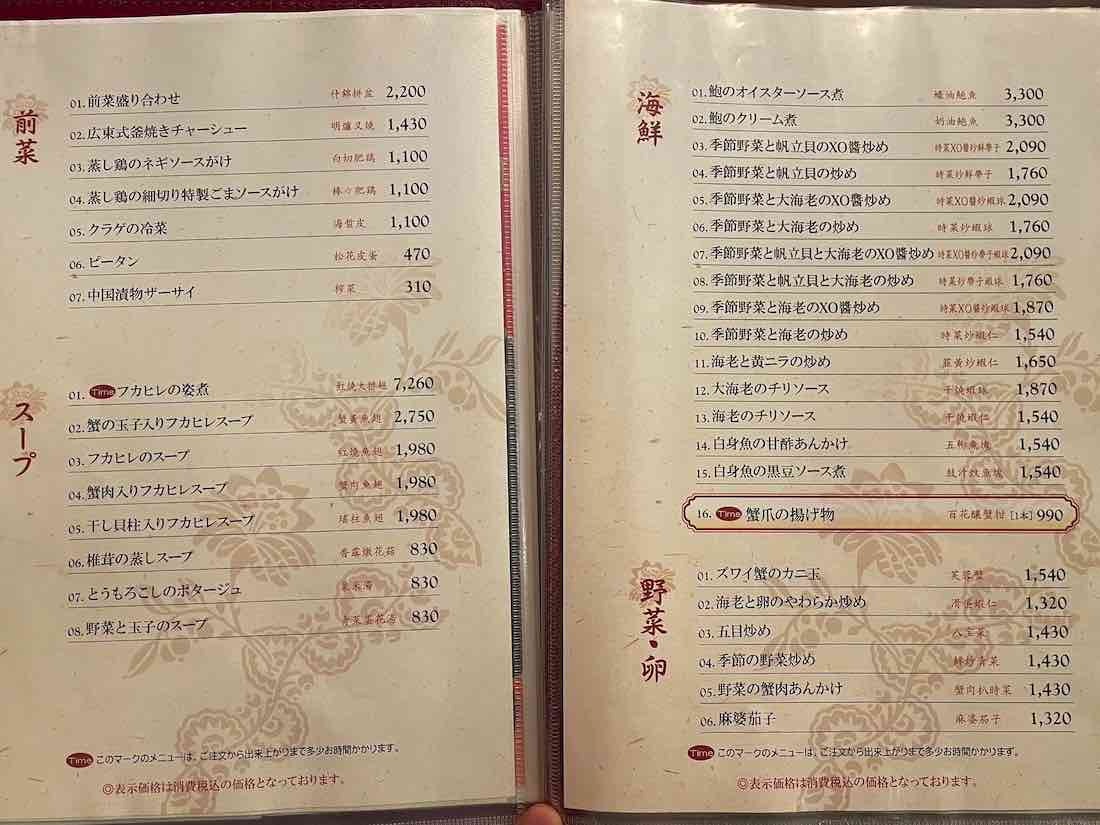 前菜
01.前菜盛り合わせ 什錦拼盆 2,200
02.広東式釜焼きチャーシュー 明爐叉燒 1,430
03.蒸し鶏のネギソースがけ 白切肥鶏 1,100
04.蒸し鶏の細切り特製ごまソースがけ 棒々肥鶏 1,100
05.クラゲの冷菜 海蜇皮 1,100
06.ピータン 松花皮蛋 470
07.中国漬物ザーサイ 榨菜 310
スープ
01.Timeフカヒレの姿煮 紅燒大排翅 7,260
02.蟹の玉子入りフカヒレスープ 蟹黄魚翅 2,750
03.フカヒレのスープ 紅燒魚翅 1,980
04.蟹肉入りフカヒレスープ 蟹肉魚翅 1,980
05.干し貝柱入りフカヒレスープ 瑤柱魚翅 1,980
06.椎茸の蒸しスープ 香露燉花菇 830
07.とうもろこしのポタージュ 粟米湯 830
08.野菜と玉子のスープ 青菜蛋花湯 830
Time このマークのメニューは、ご注文から出来上がりまで多少お時間かかります。
◎表示価格は消費税込の価格となっております。
海鮮
01.鮑のオイスターソース煮 蠔油鮑魚 3,300
02.鮑のクリーム煮 奶油鮑魚 3,300
03.季節野菜と帆立貝のXO醬炒め 時菜XO醬炒鮮帶子 2,090
04.季節野菜と帆立貝の炒め 時菜炒鮮帶子 1,760
05.季節野菜と大海老のXO醬炒め 時菜XO醬炒蝦球 2,090
06.季節野菜と大海老の炒め 時菜炒蝦球 1,760
07.季節野菜と帆立貝と大海老のXO醬炒め 時菜XO醬炒帶子蝦球 2,090
08.季節野菜と帆立貝と大海老の炒め 時菜炒帶子蝦球 1,760
09.季節野菜と海老のXO醬炒め 時菜XO醬炒蝦仁 1,870
10.季節野菜と海老の炒め 時菜炒蝦仁 1,540
11.海老と黄ニラの炒め 韮黄炒蝦仁 1,650
12.大海老のチリソース 干燒蝦球 1,870
13.海老のチリソース 干燒蝦仁 1,540
14.白身魚の甘酢あんかけ 五柳魚塊 1,540
15.白身魚の黒豆ソース煮 豉汁炆魚塊 1,540
16. Time 蟹爪の揚げ物 百花釀蟹柑 [1本] 990
野菜・卵
01.ズワイ蟹のカニ玉 芙蓉蟹 1,540
02.海老と卵のやわらか炒め 滑蛋蝦仁 1,320
03.五目炒め 八宝菜 1,430
04.季節の野菜炒め 鮮炒青菜 1,430
05.野菜の蟹肉あんかけ 蟹肉扒時菜 1,430
06.麻婆茄子 麻婆茄子 1,320
Time このマークのメニューは、ご注文から出来上がりまで多少お時間かかります。
◎表示価格は消費税込の価格となっております。